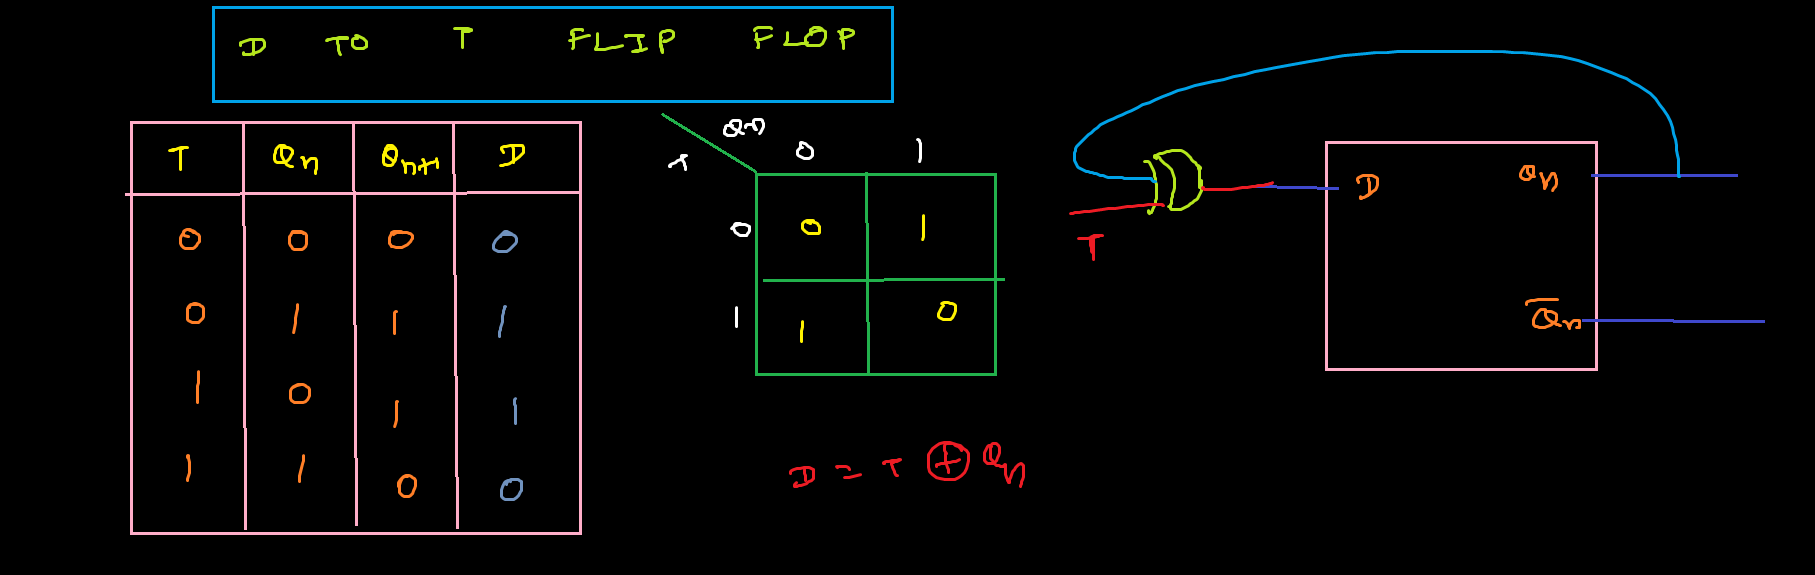 D TO T FLIP FLOP
T Qn Qn+1 D
0 0 0 0
0 1 1 1
1 0 1 1
1 1 0 0
Qn
T 0 1
0 0 1
1 1 0
D = T ⊕ Qn
T
D Qn
Q̅n